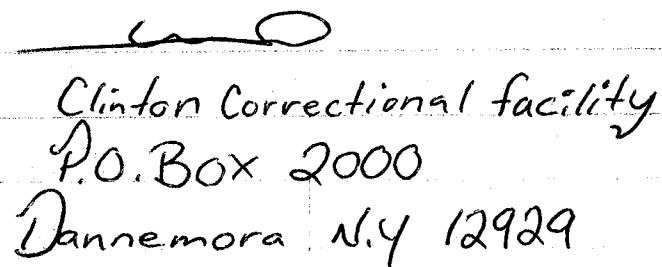 Clinton Correctional facility
P.O. Box 2000
Dannemora N.Y 12929